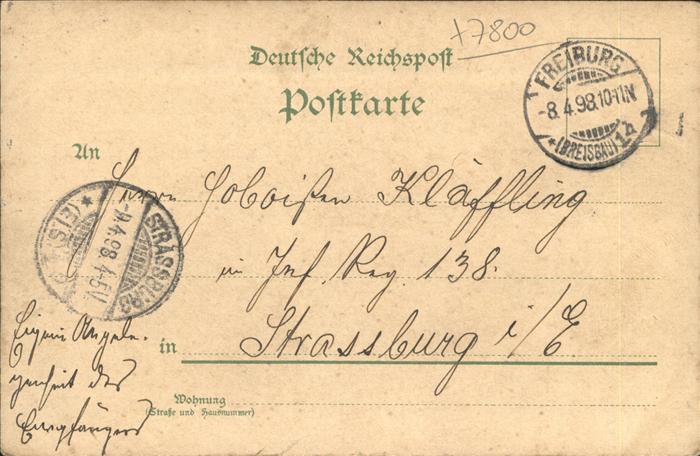 +7800
Deutsche Reichspost
Postkarte
FREIBURG
-8.4.98.10-11N
*(BREISGAU)1a
An
Herrn Hoboisten Kläffling
in Inf. Reg. 138.
in Strassburg i/E
STRASSBURG
4.98.4-5V.
*(ELS.)
Eigene Angele-
genheit des
Empfängers
Wohnung
(Straße und Hausnummer)